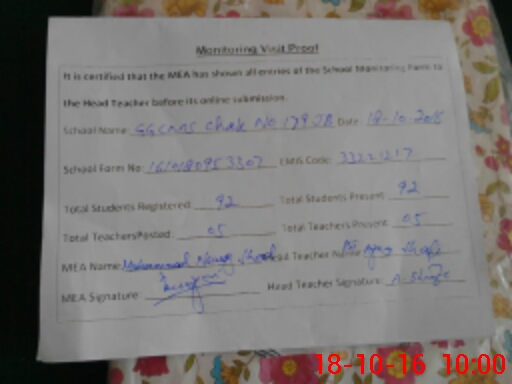 Monitoring Visit Proof
It is certified that the MEA has shown all entries of the School Monitoring Form to
the Head Teacher before its online submission.
School Name: GGCMS Chak No 179 JB Date: 18-10-2016
School Form No: EMIS Code: 33221217
Total Students Registered: 92 Total Students Present: 92
Total Teachers Posted: 05 Total Teachers Present: 05
MEA Name: Muhammad Head Teacher Name:
MEA Signature: Head Teacher Signature:
18-10-16 10:00